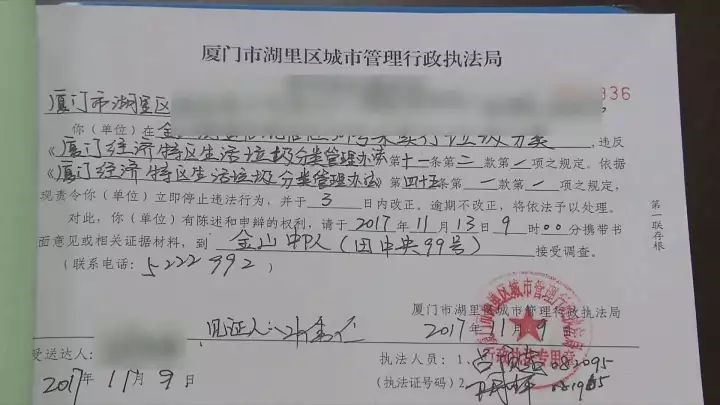 厦门市湖里区城市管理行政执法局
936
厦门市湖里区
你（单位）在 垃圾分类 ，违反
《厦门经济特区生活垃圾分类管理办法》第十一条第二款第/项之规定。依据
《厦门经济特区生活垃圾分类管理办法》第四十五条第一款第/项之规定，
现责令你（单位）立即停止违法行为，并于3日内改正。逾期不改正，将依法予以处理。
对此，你（单位）有陈述和申辩的权利，请于2017年11月13日9时00分携带书
面意见或相关证据材料，到金山中队（田中央99号）接受调查。
（联系电话：5222992）
第一联存根
厦门市湖里区城市管理行政执法局
2017年11月9日
见证人：
受送达人：
执法人员：1、 082095
2017年11月9日
（执法证号码）2、